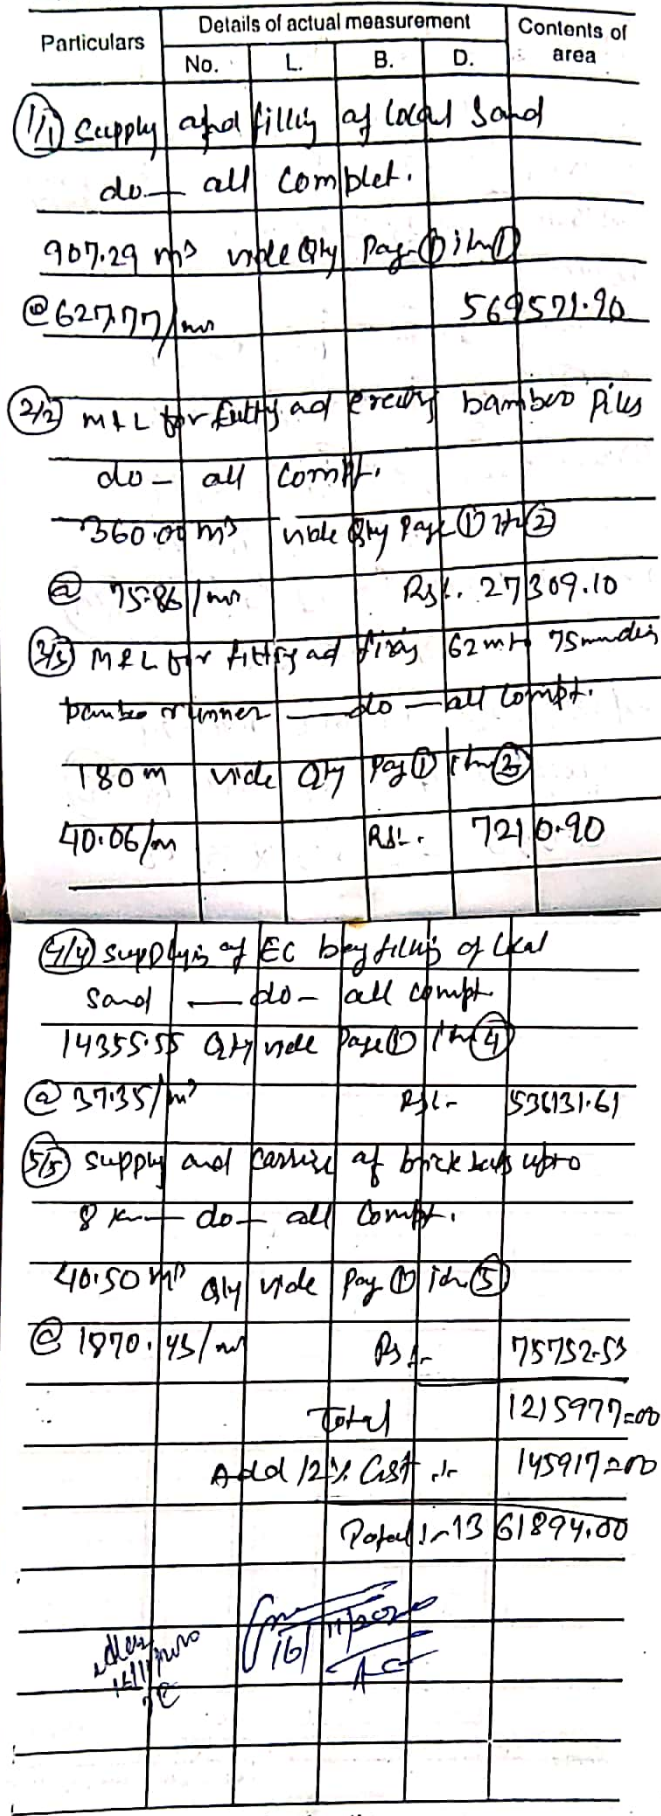 Particulars Details of actual measurement Contents of area
No. L. B. D.
1/1 Supply and filling of local Sand
do — all complet.
907.29 m³ vide Qty Page ① itm ①
@ 627.77/m³ 569571.90
2/2 M&L for fitty ad erecting bamboo Piles
do — all compt.
360.00 m³ vide Qty Page ① It ②
@ 75.86/m Rs/. 27309.10
3/3 M&L for fitting ad fixing 62 mm to 75mm dia
bamboo runner — do — all compt.
180 m vide Qty Pag ① itm ③
40.06/m Rs/. 7210.90
4/4 Supplying of EC bag filling of local
Sand — do — all compt.
14355.55 Qty vide Page ① itm ④
@ 37.35/m³ Rs/- 536131.61
5/5 Supply and carrise of brick bats upto
8 km — do — all compt.
40.50 m³ Qty vide Pag ① itm ⑤
@ 1870.43/m Rs/- 75752.53
Total 1215977=00
Add 12% Gst 145917=00
Total :- 1361894.00
16/11/2020